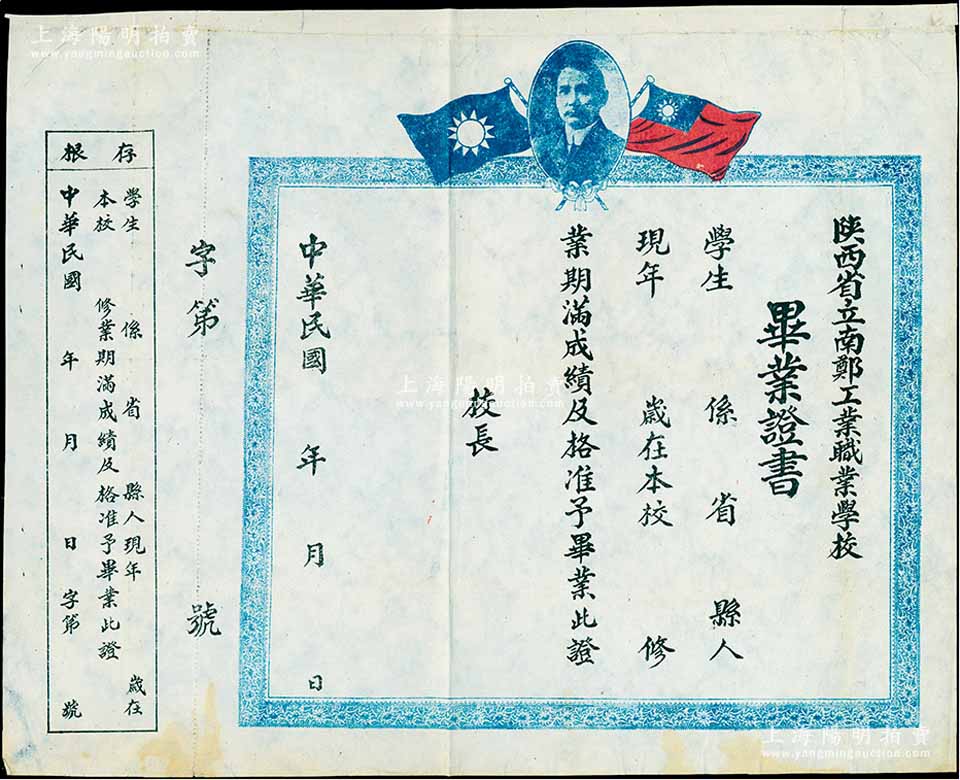 上海陽明拍賣
www.yangmingauction.com
陝西省立南鄭工業職業學校
畢業證書
學生 係 省 縣人
現年 歲在本校 修
業期滿成績及格准予畢業此證
校長
中華民國 年 月 日
字第 號
存根
學生 係 省 縣人現年 歲在
本校 修業期滿成績及格准予畢業此證
中華民國 年 月 日 字第 號
上海陽明拍賣
www.yangmingauction.com
上海陽明拍賣
www.yangmingauction.com